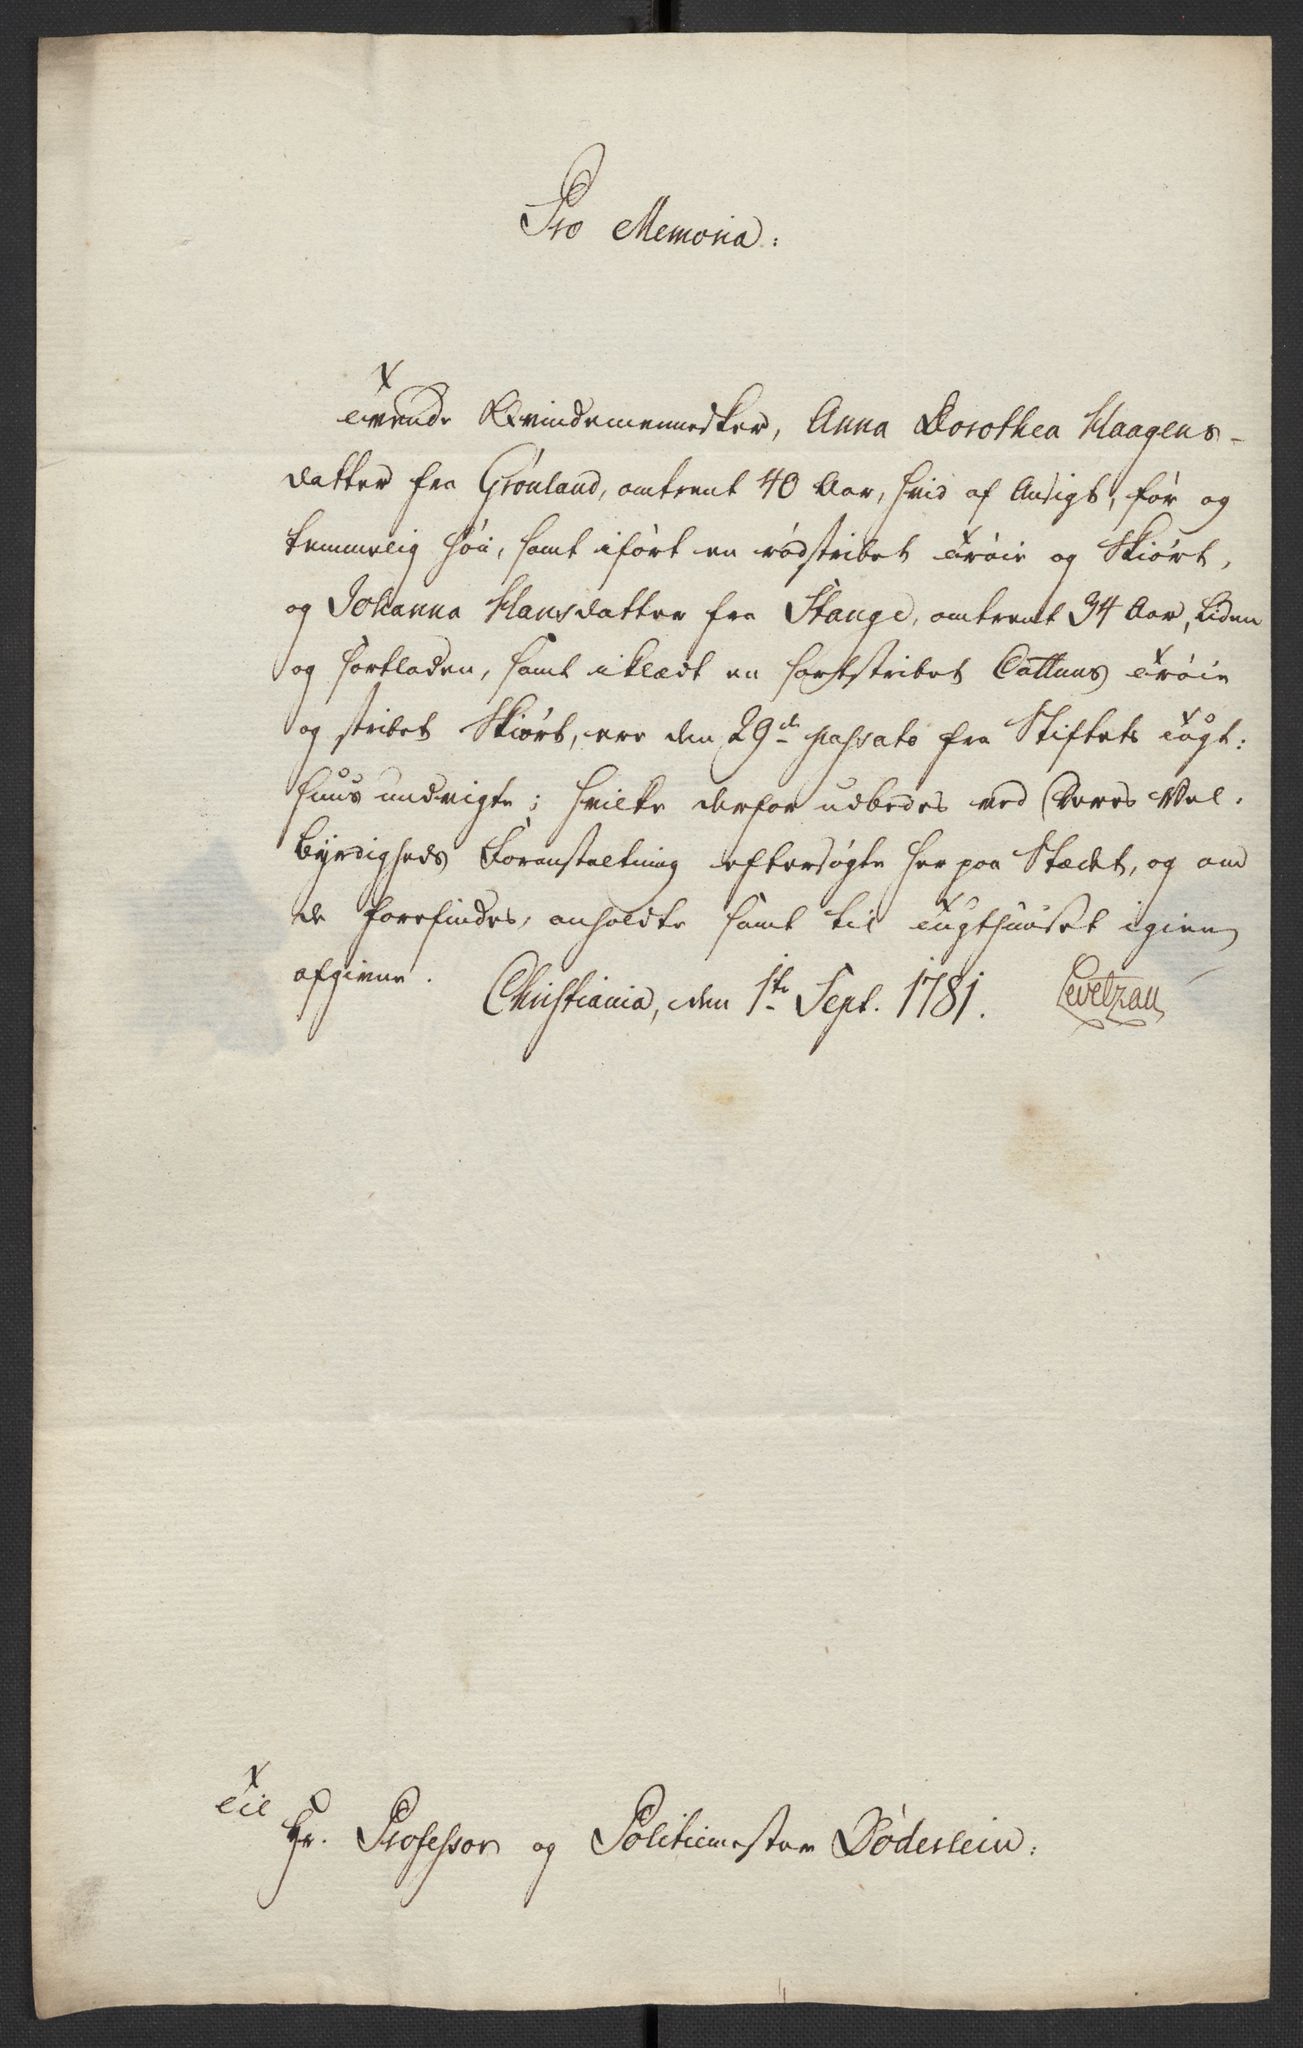 Pro Memoria:
Tvende Qvindemennesker, Anna Dorothea Haagens-
datter fra Grønland, omtrent 40 Aar, hvid af Ansigt, før og
temmelig høi, samt iført en rødstribet Trøie og Skiørt,
og Johanna Hansdatter fra Stange, omtrent 34 Aar, liden
og sortladen, samt iklædt en sortstribet Cattuns Trøie
og stribet Skiørt, ere den 29de passato fra Stiftets Tugt:
huus undvigte; hvilke derfor udbedes ved Deres Vel-
byrdigheds Foranstaltning eftersøgte her paa Stædet, og om
de forefindes, anholdte samt til Tugthuuset igien
afgivne. Christiania, den 1te Sept. 1781. Levetzau
Til
Hr. Professor og Politiemester Døderlein: